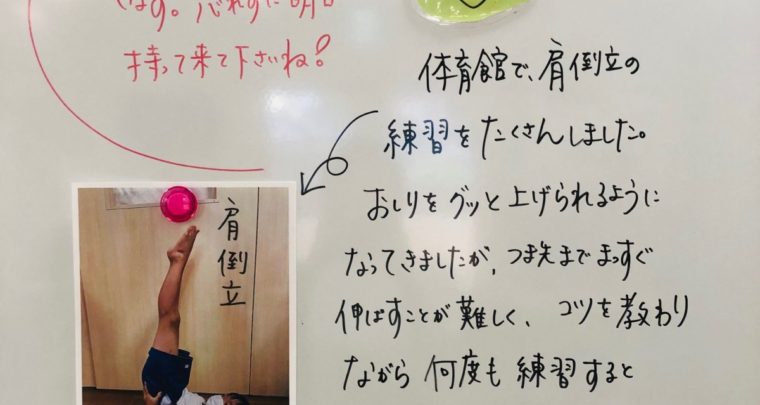 持って来て下さいね!
体育館で、肩倒立の
練習をたくさんしました。
おしりをグッと上げられるように
なってきましたが、つま先までまっすぐ
伸ばすことが難しく、コツを教わり
ながら何度も練習すると
肩倒立